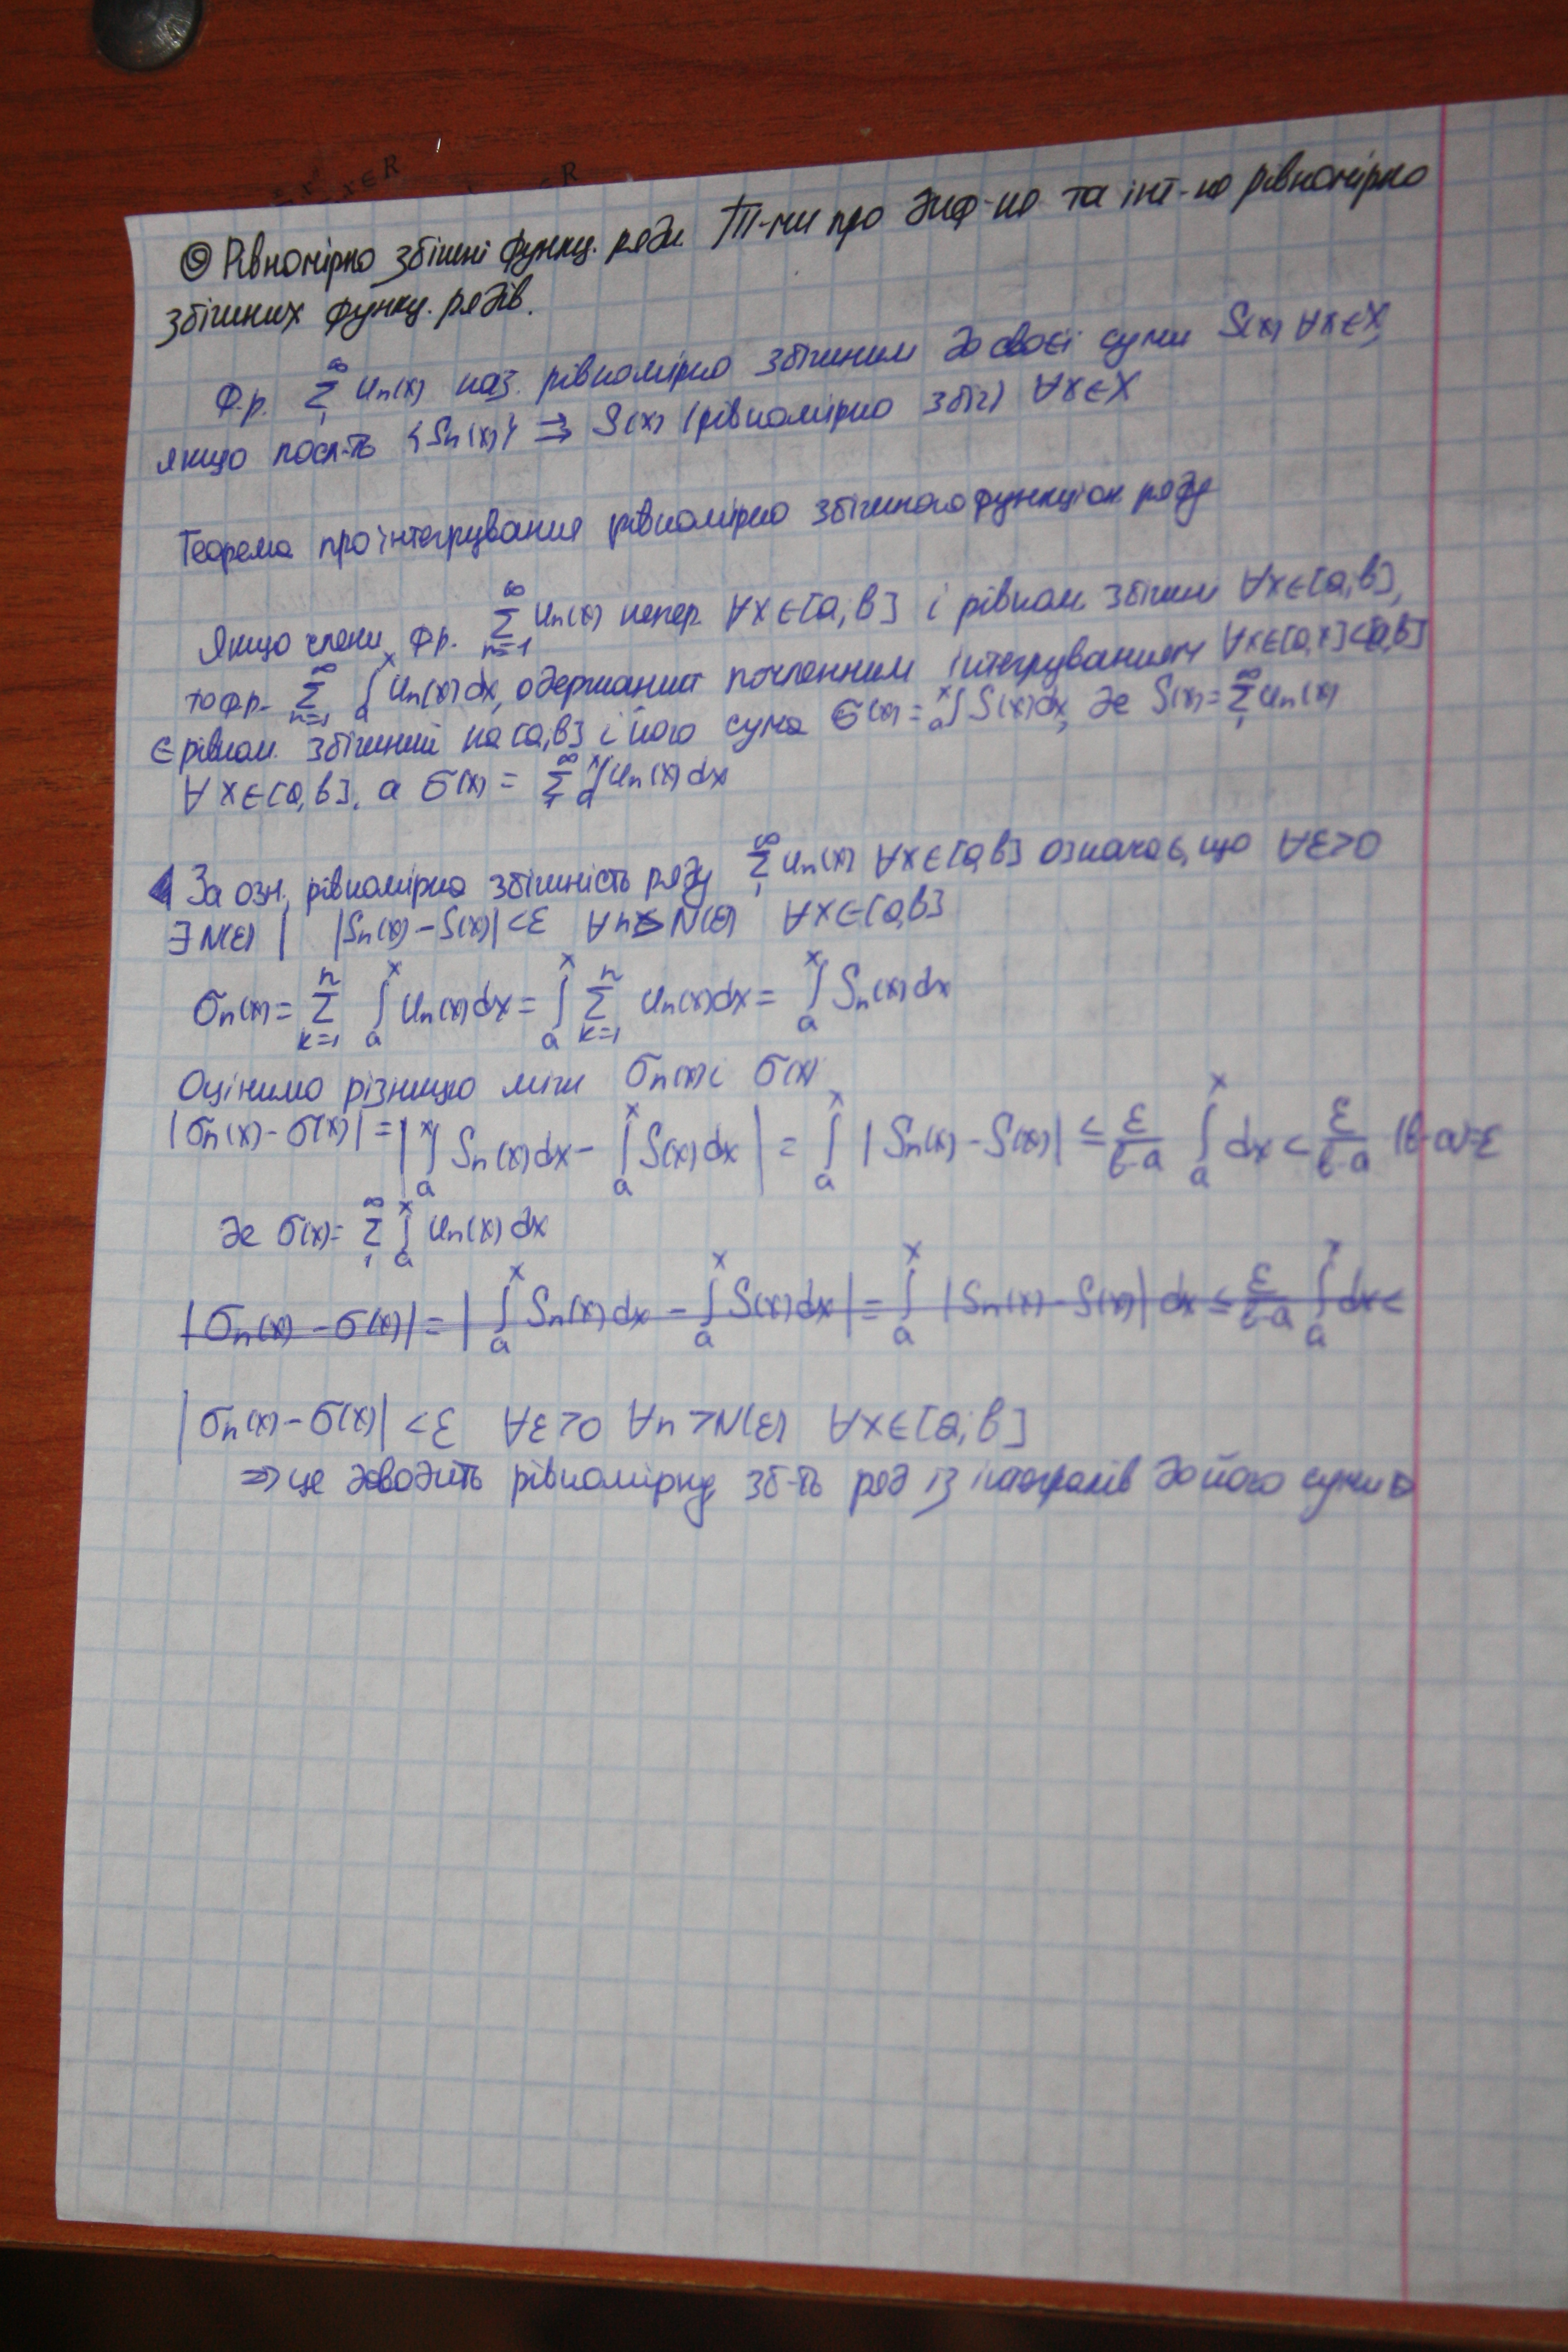 x∈R
R
⑨ Рівномірно збіжні функц. ряди. Т-ми про диф-не та інт-не рівномірно
збіжних функц. рядів.
Ф.р. ∑₁^∞ Uₙ(x) наз. рівномірно збіжним до своєї суми S(x) ∀x∈X,
якщо посл-ть {Sₙ(x)} ⇉ S(x) (рівномірно збіг) ∀x∈X
Теорема про інтегрування рівномірно збіжного функціон ряду
Якщо члени ф.р. ∑ₙ₌₁^∞ Uₙ(x) непер. ∀x∈[a;b] і рівном. збіжн ∀x∈[a;b],
то ф.р. ∑ₙ₌₁^∞ ∫ₐˣ Uₙ(x)dx, одержаний почленним інтегруванням ∀x∈[a,x]⊂[a,b]
є рівном. збіжний на [a,b] і його сума σ(x) = ₐ∫ˣ S(x)dx, де S(x) = ∑₁^∞ Uₙ(x)
∀x∈[a,b], а σ(x) = ∑₁^∞ ∫ₐˣ Uₙ(x)dx
◀ За озн. рівномірна збіжність ряду ∑₁^∞ Uₙ(x) ∀x∈[a,b] означає, що ∀ε>0
∃N(ε) | |Sₙ(x) − S(x)| < ε ∀n > N(ε) ∀x∈[a,b]
σₙ(x) = ∑ₖ₌₁ⁿ ∫ₐˣ Uₙ(x)dx = ∫ₐˣ ∑ₖ₌₁ⁿ Uₙ(x)dx = ∫ₐˣ Sₙ(x)dx
Оцінимо різницю між σₙ(x) і σ(x)
|σₙ(x) − σ(x)| = |∫ₐˣ Sₙ(x)dx − ∫ₐˣ S(x)dx| = ∫ₐˣ |Sₙ(x) − S(x)| ≤ ε/(b-a) ∫ₐˣ dx < ε/(b-a) (b-a)=ε
де σ(x) = ∑₁^∞ ∫ₐˣ Uₙ(x)dx
|σₙ(x) − σ(x)| = |∫ₐˣ Sₙ(x)dx − ∫ₐˣ S(x)dx| = ∫ₐˣ |Sₙ(x) − S(x)|dx ≤ ε/(b-a) ∫ₐˣ dx <
|σₙ(x) − σ(x)| < ε ∀ε>0 ∀n>N(ε) ∀x∈[a;b]
⇒ це доводить рівномірну зб-ть ряд із інтегралів до його суми ▷